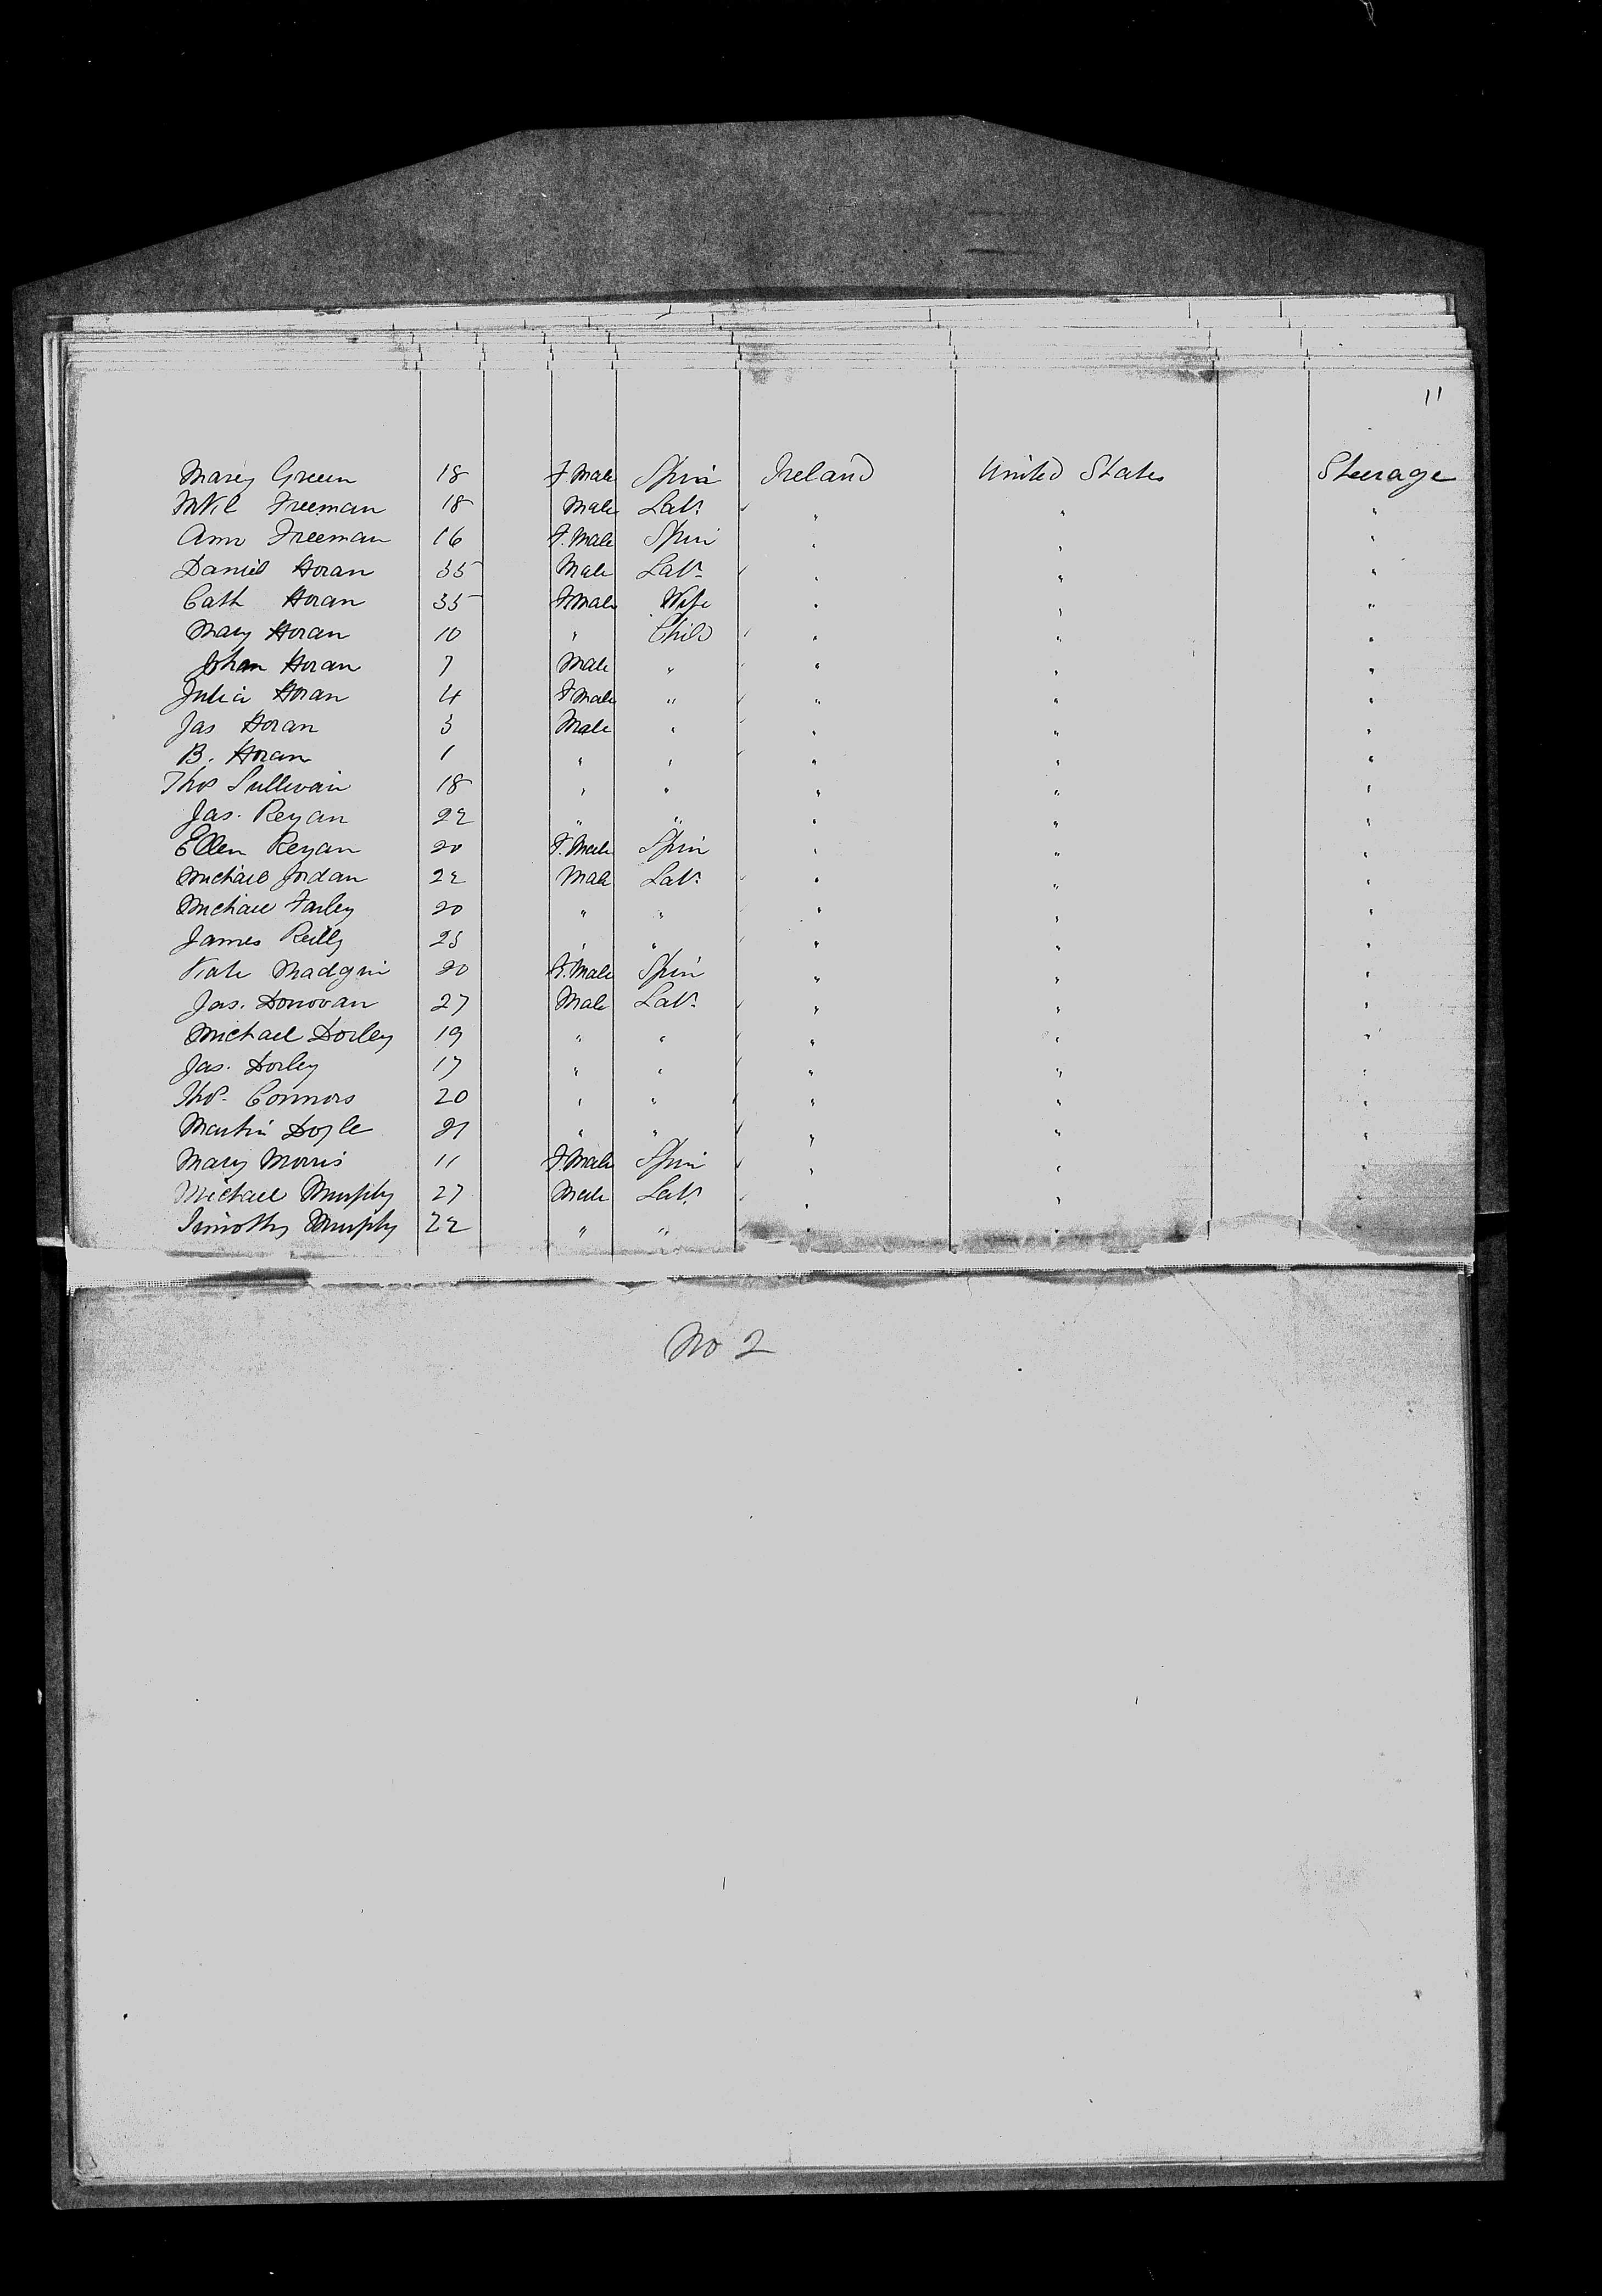 11
Mary Green 18 F.Male Spin Ireland United States Steerage
Freeman 18 Male Labr " " "
Ann Freeman 16 F.Male Spin " " "
Daniel Horan 35 Male Labr " " "
Cath Horan 35 F.Male Wife " " "
Mary Horan 10 " Child " " "
Johan Horan 7 Male " " " "
Julia Horan 4 F.Male " " " "
Jas Horan 3 Male " " " "
B. Horan 1 " " " " "
Thos Sullivan 18 " " " " "
Jas. Reyan 22 " " " " "
Ellen Reyan 20 F.Male Spin " " "
Michael Jordan 22 Male Labr " " "
Michael Farley 20 " " " " "
James Reilly 25 " " " " "
Kate Madgin 20 F.Male Spin " " "
Jas. Donovan 27 Male Labr " " "
Michael Dorley 19 " " " " "
Jas. Dorley 17 " " " " "
Thos. Connors 20 " " " " "
Martin Doyle 21 " " " " "
Mary Morris 11 F.Male Spin " " "
Michael Murphy 27 Male Labr " " "
Timothy Murphy 22 " " "
No 2